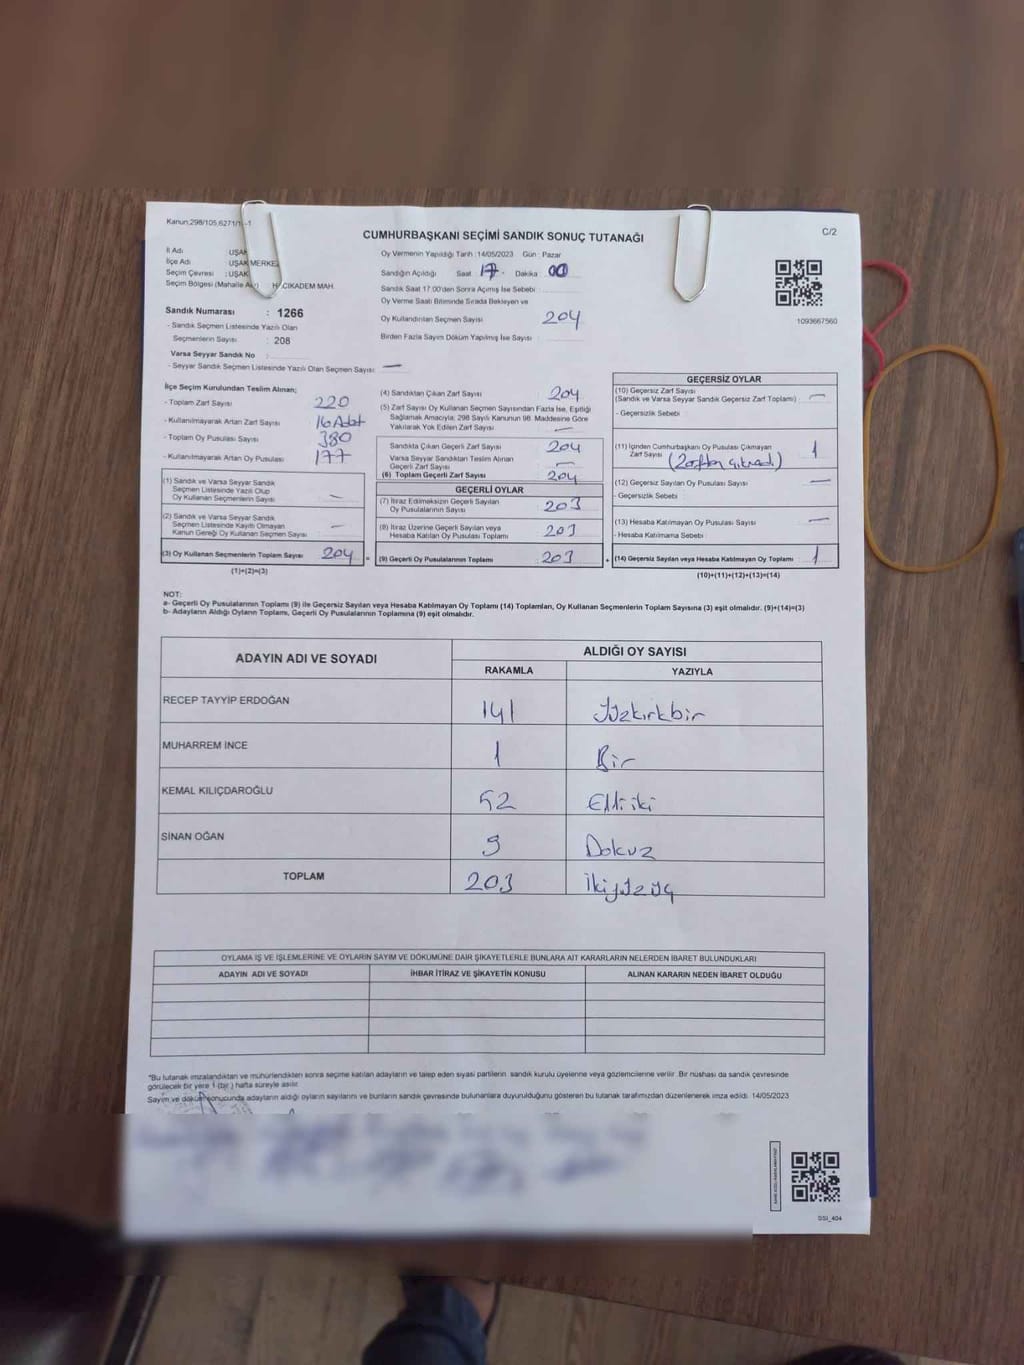 Kanun:298/105,6271/1 -1
CUMHURBAŞKANI SEÇİMİ SANDIK SONUÇ TUTANAĞI
C/2
İl Adı UŞAK
İlçe Adı UŞAK MERKEZ
Seçim Çevresi : UŞAK
Seçim Bölgesi (Mahalle HACIKADEM MAH.
Sandık Numarası : 1266
- Sandık Seçmen Listesinde Yazılı Olan
Seçmenlerin Sayısı : 208
Varsa Seyyar Sandık No :
- Seyyar Sandık Seçmen Listesinde Yazılı Olan Seçmen Sayısı: —
Oy Vermenin Yapıldığı Tarih :14/05/2023 Gün : Pazar
Sandığın Açıldığı Saat : 17 Dakika : 00
Sandık Saat 17:00'den Sonra Açılmış İse Sebebi :
Oy Verme Saati Bitiminde Sırada Bekleyen ve
Oy Kullandırılan Seçmen Sayısı : 204
Birden Fazla Sayım Döküm Yapılmış İse Sayısı :
1093667560
İlçe Seçim Kurulundan Teslim Alınan;
- Toplam Zarf Sayısı : 220
- Kullanılmayarak Artan Zarf Sayısı : 16 Adet
- Toplam Oy Pusulası Sayısı : 380
- Kullanılmayarak Artan Oy Pusulası : 177
(1) Sandık ve Varsa Seyyar Sandık
Seçmen Listesinde Yazılı Olup
Oy Kullanan Seçmenlerin Sayısı : —
(2) Sandık ve Varsa Seyyar Sandık
Seçmen Listesinde Kayıtlı Olmayan
Kanun Gereği Oy Kullanan Seçmen Sayısı : —
(3) Oy Kullanan Seçmenlerin Toplam Sayısı : 204 =
(1)+(2)=(3)
(4) Sandıktan Çıkan Zarf Sayısı : 204
(5) Zarf Sayısı Oy Kullanan Seçmen Sayısından Fazla İse, Eşitliği
Sağlamak Amacıyla; 298 Sayılı Kanunun 98. Maddesine Göre
Yakılarak Yok Edilen Zarf Sayısı : —
Sandıkta Çıkan Geçerli Zarf Sayısı : 204
Varsa Seyyar Sandıktan Teslim Alınan
Geçerli Zarf Sayısı : —
(6) Toplam Geçerli Zarf Sayısı : 204
GEÇERLİ OYLAR
(7) İtiraz Edilmeksizin Geçerli Sayılan
Oy Pusulalarının Sayısı : 203
(8) İtiraz Üzerine Geçerli Sayılan veya
Hesaba Katılan Oy Pusulalarının Sayısı : 203
(9) Geçerli Oy Pusulalarının Toplamı : 203 +
GEÇERSİZ OYLAR
(10) Geçersiz Zarf Sayısı
(Sandık ve Varsa Seyyar Sandık Geçersiz Zarf Toplamı) : —
- Geçersizlik Sebebi :
(11) İçinden Cumhurbaşkanı Oy Pusulası Çıkmayan
Zarf Sayısı : 1
(Zarftan çıkmadı)
(12) Geçersiz Sayılan Oy Pusulası Sayısı : —
- Geçersizlik Sebebi :
(13) Hesaba Katılmayan Oy Pusulası Sayısı : —
- Hesaba Katılmama Sebebi :
(14) Geçersiz Sayılan veya Hesaba Katılmayan Oy Toplamı : 1
(10)+(11)+(12)+(13)=(14)
NOT:
a- Geçerli Oy Pusulalarının Toplamı (9) ile Geçersiz Sayılan veya Hesaba Katılmayan Oy Toplamı (14) Toplamları, Oy Kullanan Seçmenlerin Toplam Sayısına (3) eşit olmalıdır. (9)+(14)=(3)
b- Adayların Aldığı Oyların Toplamı, Geçerli Oy Pusulalarının Toplamına (9) eşit olmalıdır.
ADAYIN ADI VE SOYADI
ALDIĞI OY SAYISI
RAKAMLA YAZIYLA
RECEP TAYYİP ERDOĞAN 141 Yüzkırkbir
MUHARREM İNCE 1 Bir
KEMAL KILIÇDAROĞLU 52 Elli iki
SİNAN OĞAN 9 Dokuz
TOPLAM 203 İkiyüzüç
OYLAMA İŞ VE İŞLEMLERİNE VE OYLARIN SAYIM VE DÖKÜMÜNE DAİR ŞİKAYETLERLE BUNLARA AİT KARARLARIN NELERDEN İBARET BULUNDUKLARI
ADAYIN ADI VE SOYADI İHBAR İTİRAZ VE ŞİKAYETİN KONUSU ALINAN KARARIN NEDEN İBARET OLDUĞU
*Bu tutanak imzalandıktan ve mühürlendikten sonra seçime katılan adayların ve talep eden siyasi partilerin sandık kurulu üyelerine veya gözlemcilerine verilir. Bir nüshası da sandık çevresinde
görülecek bir yere 1 (bir) hafta süreyle asılır.
Sayım ve döküm sonucunda adayların aldığı oyların sayılarını ve bunların sandık çevresinde bulunanlara duyurulduğunu gösteren bu tutanak tarafımızdan düzenlenerek imza edildi. 14/05/2023
DSI_404